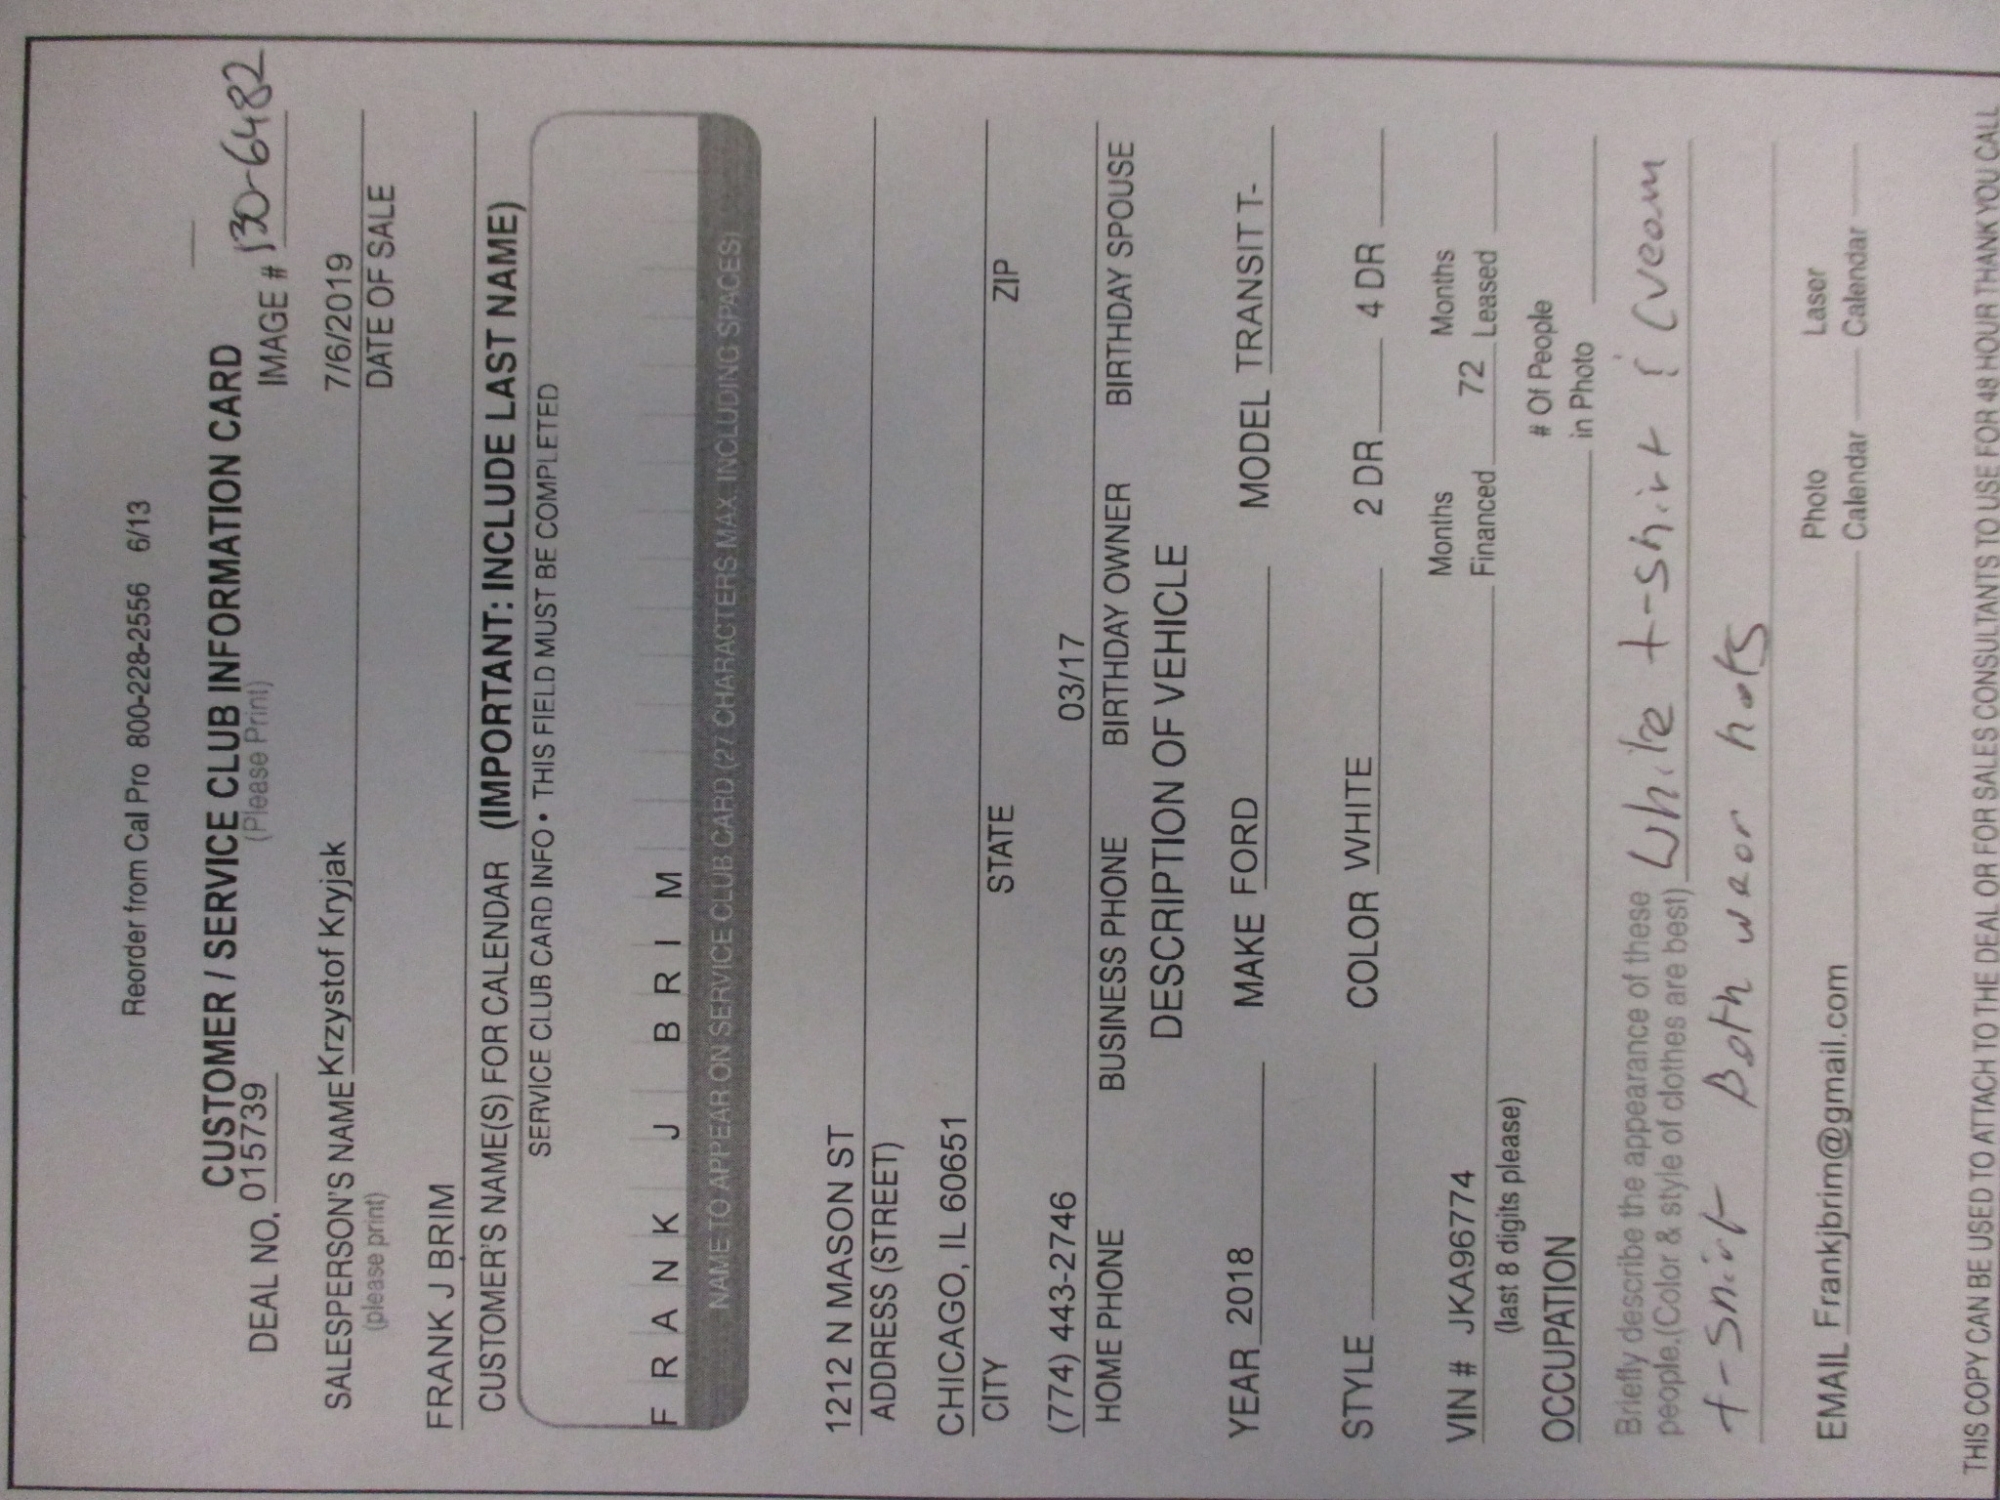 Reorder from Cal Pro 800-228-2556 6/13
CUSTOMER / SERVICE CLUB INFORMATION CARD
(Please Print)
DEAL NO. 015739 IMAGE # 130-6482
SALESPERSON'S NAME Krzystof Kryjak 7/6/2019
(please print) DATE OF SALE
FRANK J BRIM
CUSTOMER'S NAME(S) FOR CALENDAR (IMPORTANT: INCLUDE LAST NAME)
SERVICE CLUB CARD INFO • THIS FIELD MUST BE COMPLETED
FRANK J BRIM
NAME TO APPEAR ON SERVICE CLUB CARD (27 CHARACTERS MAX. INCLUDING SPACES)
1212 N MASON ST
ADDRESS (STREET)
CHICAGO, IL 60651
CITY STATE ZIP
(774) 443-2746 03/17
HOME PHONE BUSINESS PHONE BIRTHDAY OWNER BIRTHDAY SPOUSE
DESCRIPTION OF VEHICLE
YEAR 2018 MAKE FORD MODEL TRANSIT T-
STYLE COLOR WHITE 2 DR 4 DR
VIN # JKA96774 Months Financed 72 Months Leased
(last 8 digits please)
OCCUPATION # Of People in Photo
Briefly describe the appearance of these
people.(Color & style of clothes are best) White t-shirt & Cream
t-shirt Both wear hats
EMAIL Frankjbrim@gmail.com Photo Calendar Laser Calendar
THIS COPY CAN BE USED TO ATTACH TO THE DEAL OR FOR SALES CONSULTANTS TO USE FOR 48 HOUR THANK YOU CALL